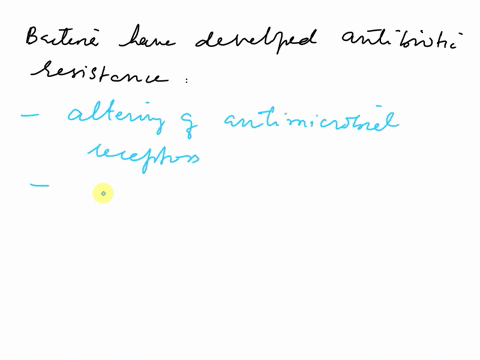 Bacteria have developed antibiotic
resistance :
– altering of antimicrobial
receptors
–